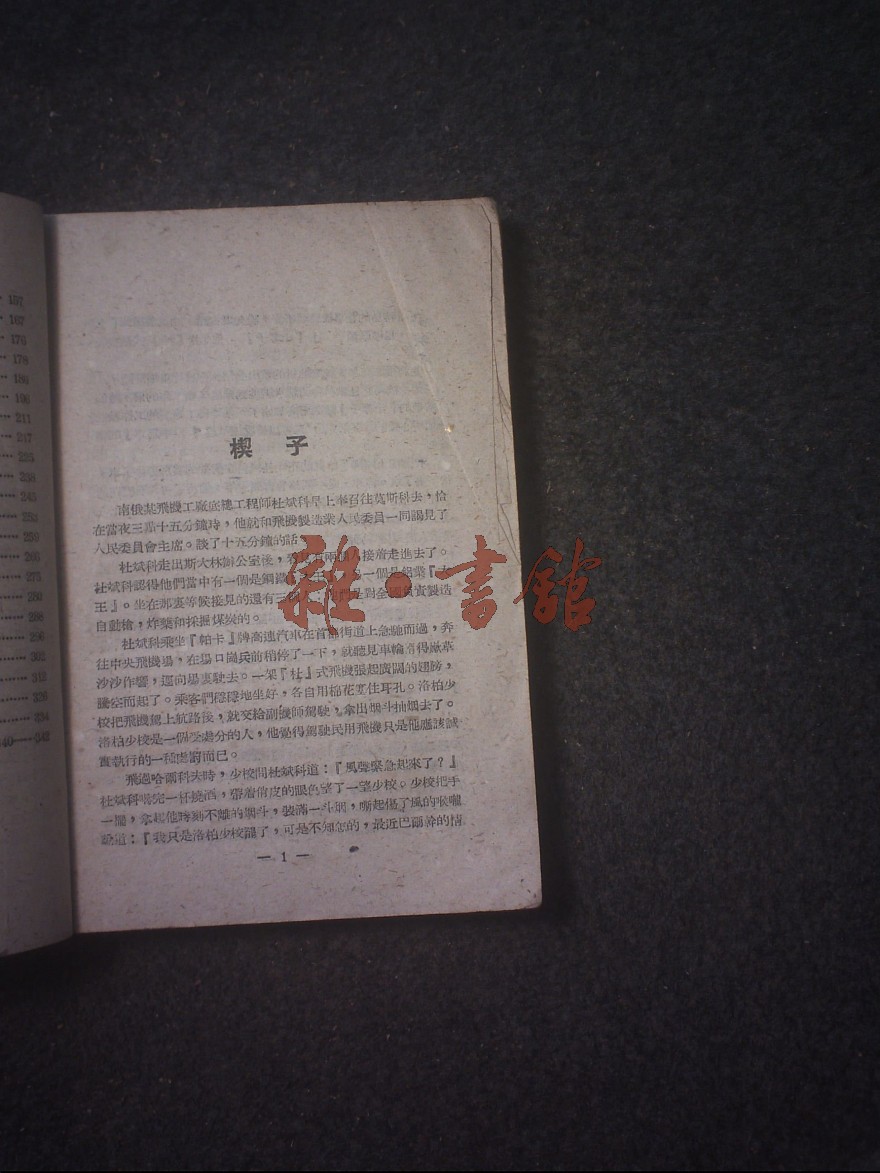 157
167
176
178
186
196
211
217
225
238
245
252
259
266
275
282
288
296
302
313
329
334
340……342
楔子
南俄某飛機工廠底總工程師杜斌科早上奉召往莫斯科去,恰
在當夜三點十五分鐘時,他就和飛機製造業人民委員一同謁見了
人民委員會主席。談了十五分鐘的話。
杜斌科走出斯大林辦公室後,兩個人接着走進去了。
杜斌科認得他們當中有一個是鋼鐵一個是鋁業『大
王』。坐在那裏等候接見的還有三個人,他們是對全國負責製造
自動槍,炸藥和採掘煤炭的。
杜斌科乘坐『帕卡』牌高速汽車在首都街道上急馳而過,奔
往中央飛機場,在場口崗兵前稍停了一下,就聽見車輪滑得廠草
沙沙作響,逕向場裏駛去。一架『杜』式飛機張起廣闊的翅膀,
騰空而起了。乘客們穩穩地坐好,各自用棉花塞住耳孔。洛柏少
校把飛機駕上航路後,就交給副機師駕駛,拿出烟斗抽烟去了。
洛柏少校是一個受處分的人,他覺得駕駛民用飛機只是他應該誠
實執行的一種處罰而已。
飛過哈爾科夫時,少校問杜斌科道:『風聲緊急起來了?』
杜斌科喝完一杯燒酒,帶着俏皮的眼色望了一望少校。少校把手
一擺,拿起他時刻不離的烟斗,裝滿一斗烟,嘶起傷了風的喉嚨
說道:『我只是洛柏少校罷了,可是不知怎的,最近巴爾幹的情
— 1 —
雜·書館